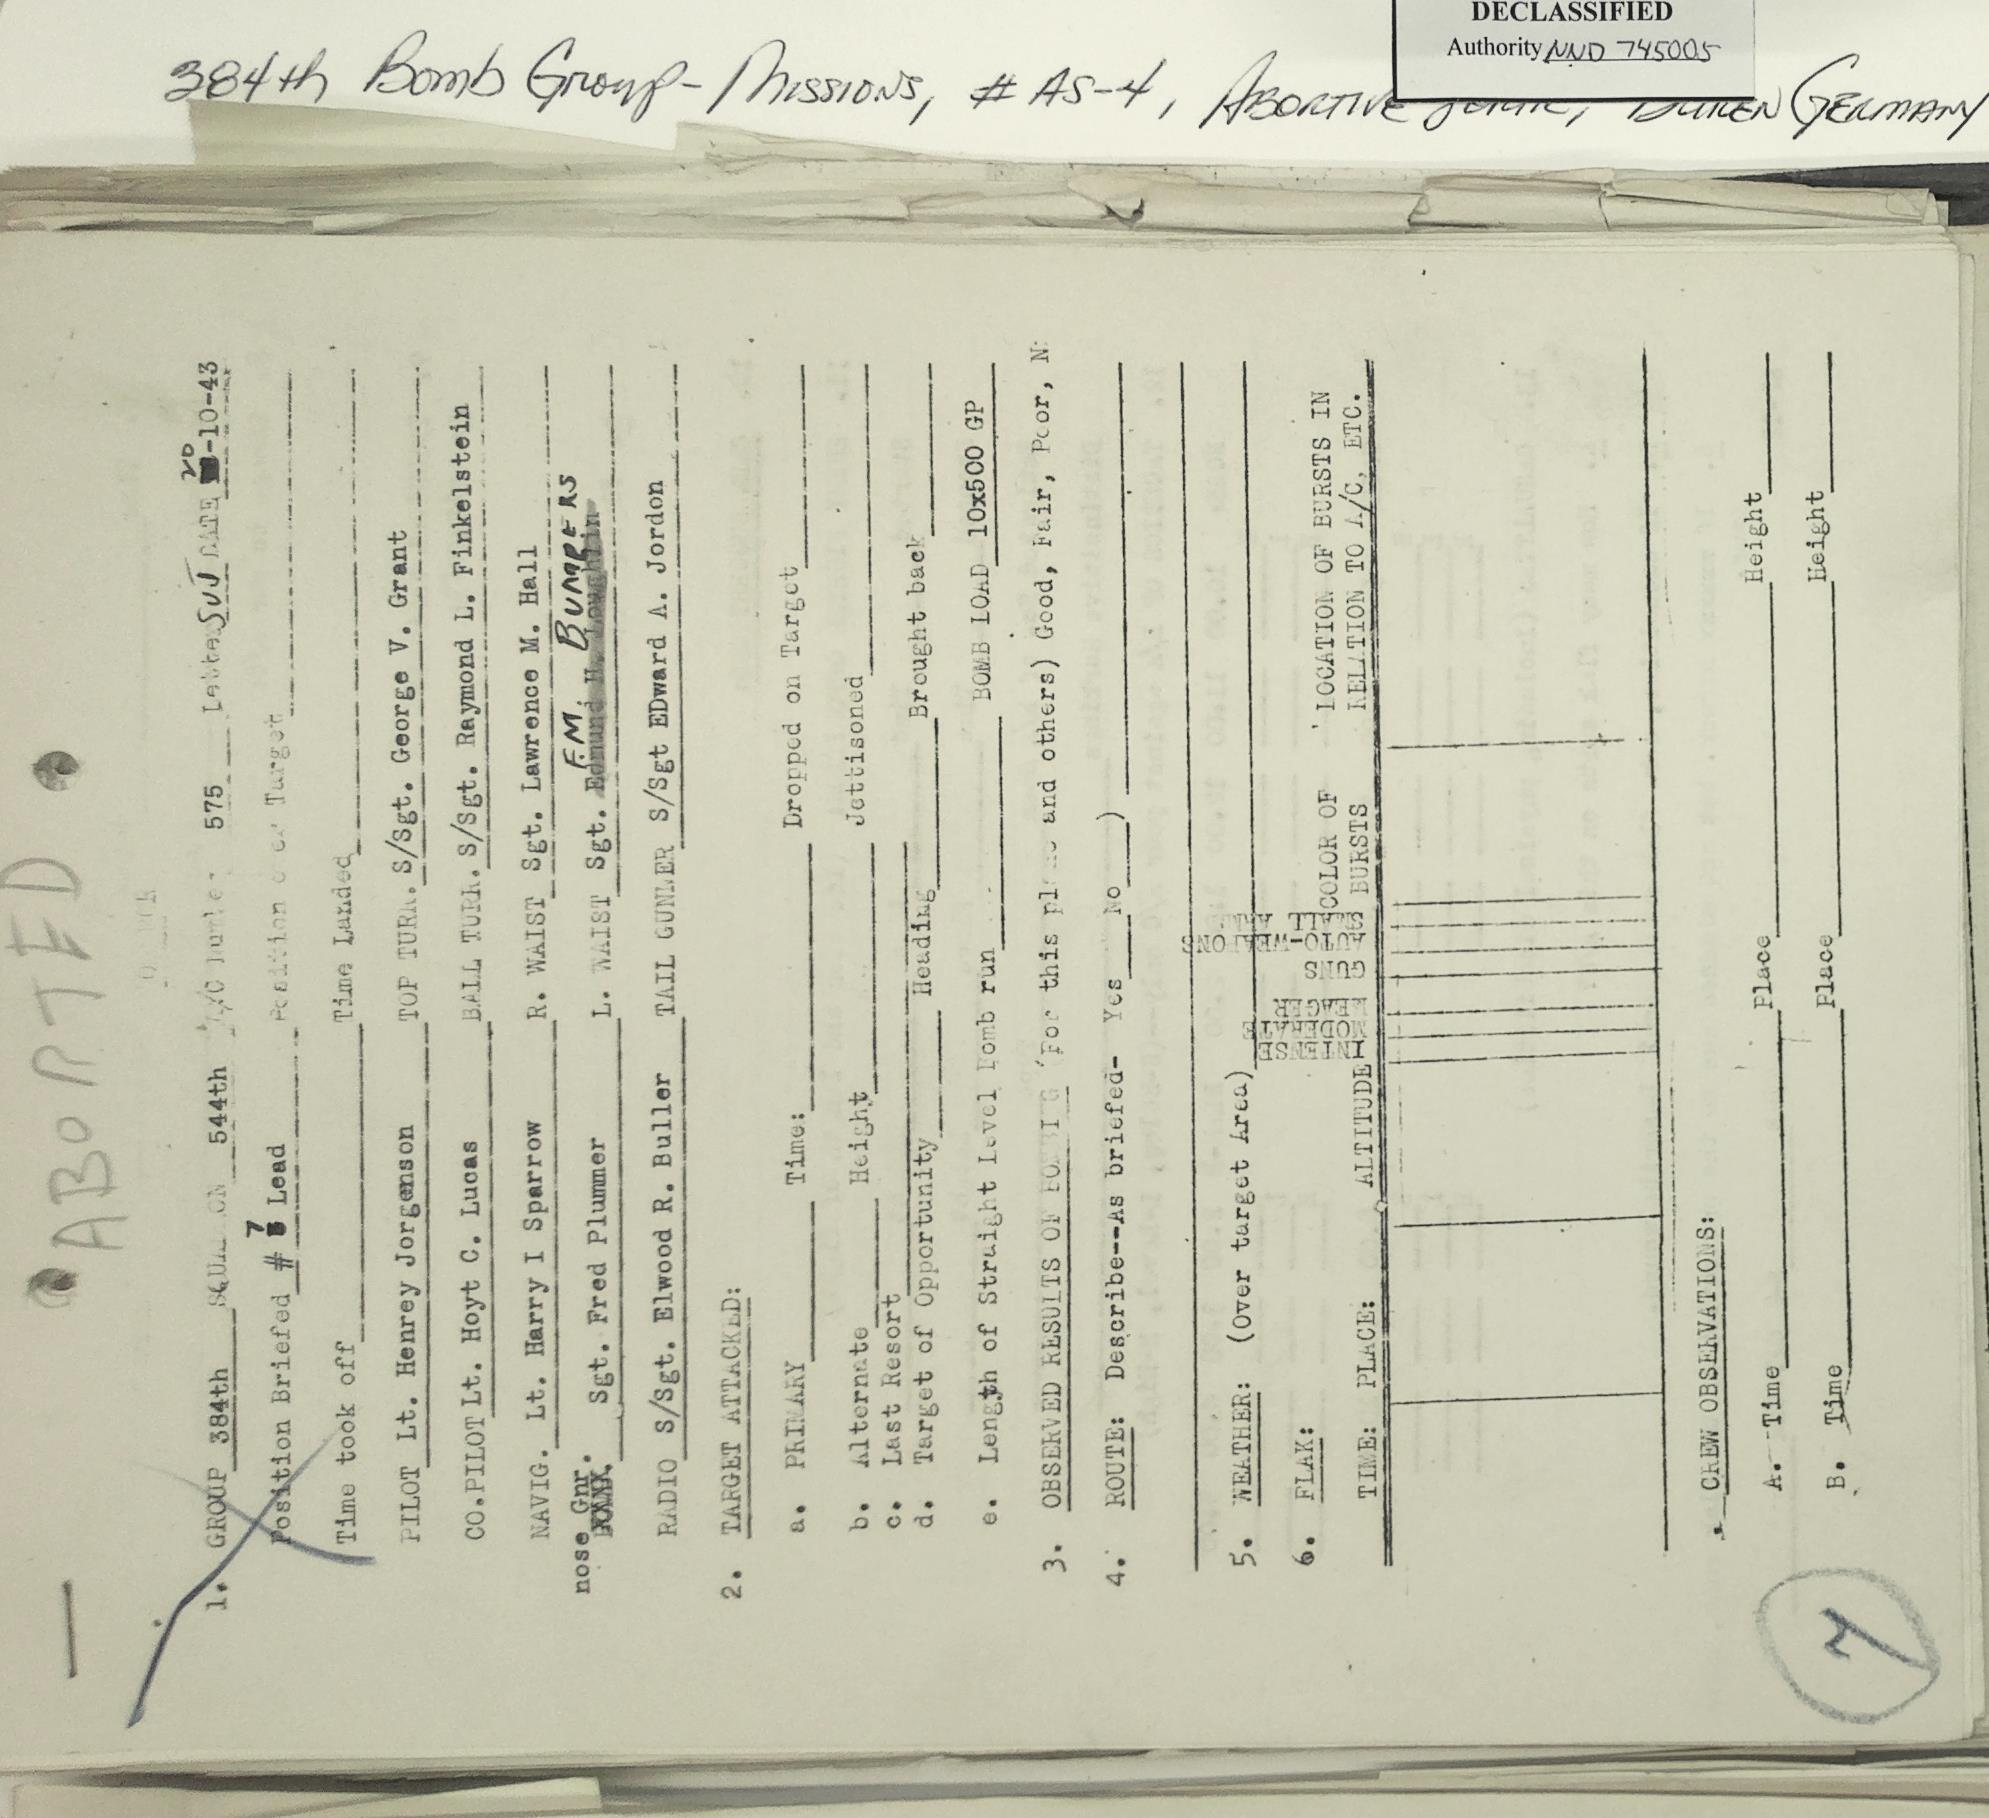 DECLASSIFIED
Authority NND 745005
384th Bomb Group - Missions, # AS-4, Abortive Sortie, Duren Germany
ABORTED
1. GROUP 384th SQUADRON 544th A/C Number 575 Letter SUJ DATE 20-10-43
Position Briefed # 7 Lead Position over Target
Time took off Time Landed
PILOT Lt. Henrey Jorgenson TOP TURR. S/Sgt. George V. Grant
CO.PILOT Lt. Hoyt C. Lucas BALL TURR. S/Sgt. Raymond L. Finkelstein
NAVIG. Lt. Harry I Sparrow R. WAIST Sgt. Lawrence M. Hall
nose Gnr. Sgt. Fred Plummer L. WAIST Sgt. F.M. BUMPERS
RADIO S/Sgt. Elwood R. Buller TAIL GUNNER S/Sgt EDward A. Jordon
2. TARGET ATTACKED:
a. PRIMARY Time: Dropped on Target
b. Alternate Height Jettisoned
c. Last Resort
d. Target of Opportunity Heading Brought back
e. Length of Straight Level Bomb run BOMB LOAD 10x500 GP
3. OBSERVED RESULTS OF BOMBING (For this plane and others) Good, Fair, Poor, N
4. ROUTE: Describe--As briefed- Yes No )
5. WEATHER: (Over target Area)
6. FLAK:
TIME: PLACE: ALTITUDE INTENSE MODERATE MEAGER GUNS AUTO-WEAPONS SMALL ARMS COLOR OF BURSTS LOCATION OF BURSTS IN RELATION TO A/C, ETC.
CREW OBSERVATIONS:
A. Time Place Height
B. Time Place Height
7